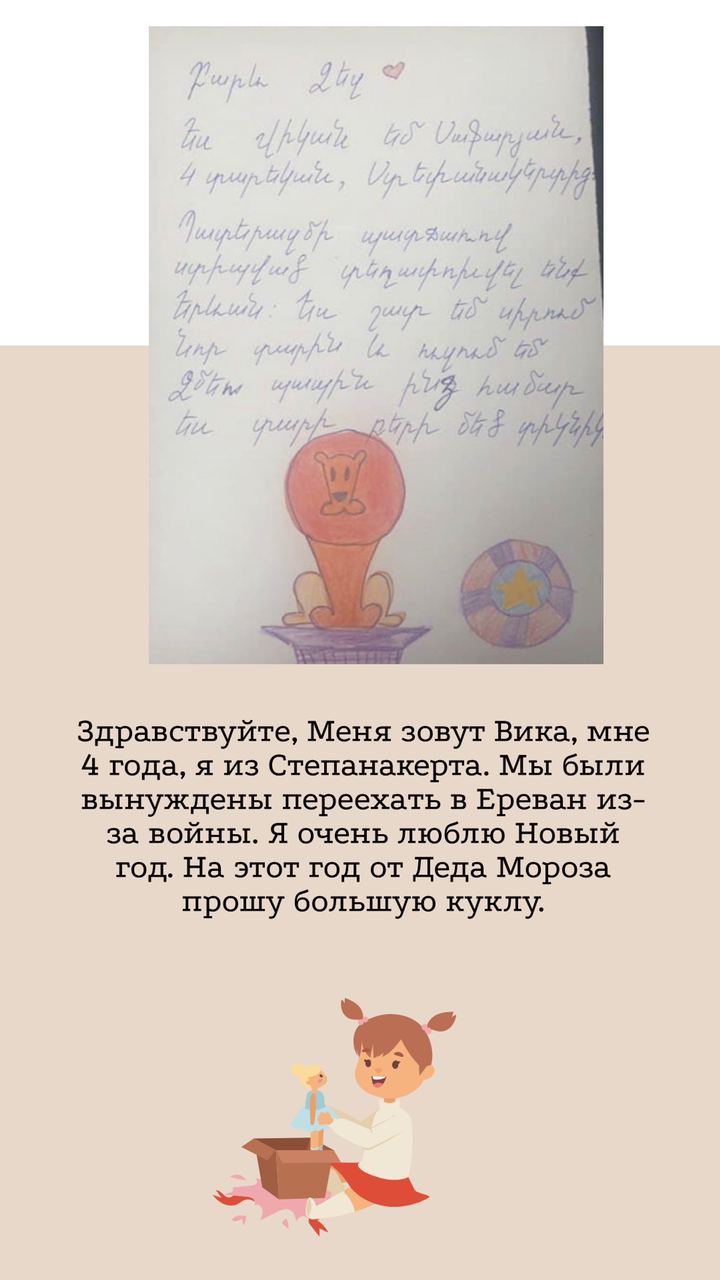 Բարև Ձեզ
Ես Վիկան եմ Սաֆարյան,
4 տարեկան, Ստեփանակերտից
Պատերազմի պատճառով
ստիպված տեղափոխվել ենք
Երևան: Ես շատ եմ սիրում
Նոր տարին և ուզում եմ
Ձմեռ պապին ինձ համար
ես տարի բերի մեծ տիկնիկ
Здравствуйте, Меня зовут Вика, мне
4 года, я из Степанакерта. Мы были
вынуждены переехать в Ереван из-
за войны. Я очень люблю Новый
год. На этот год от Деда Мороза
прошу большую куклу.